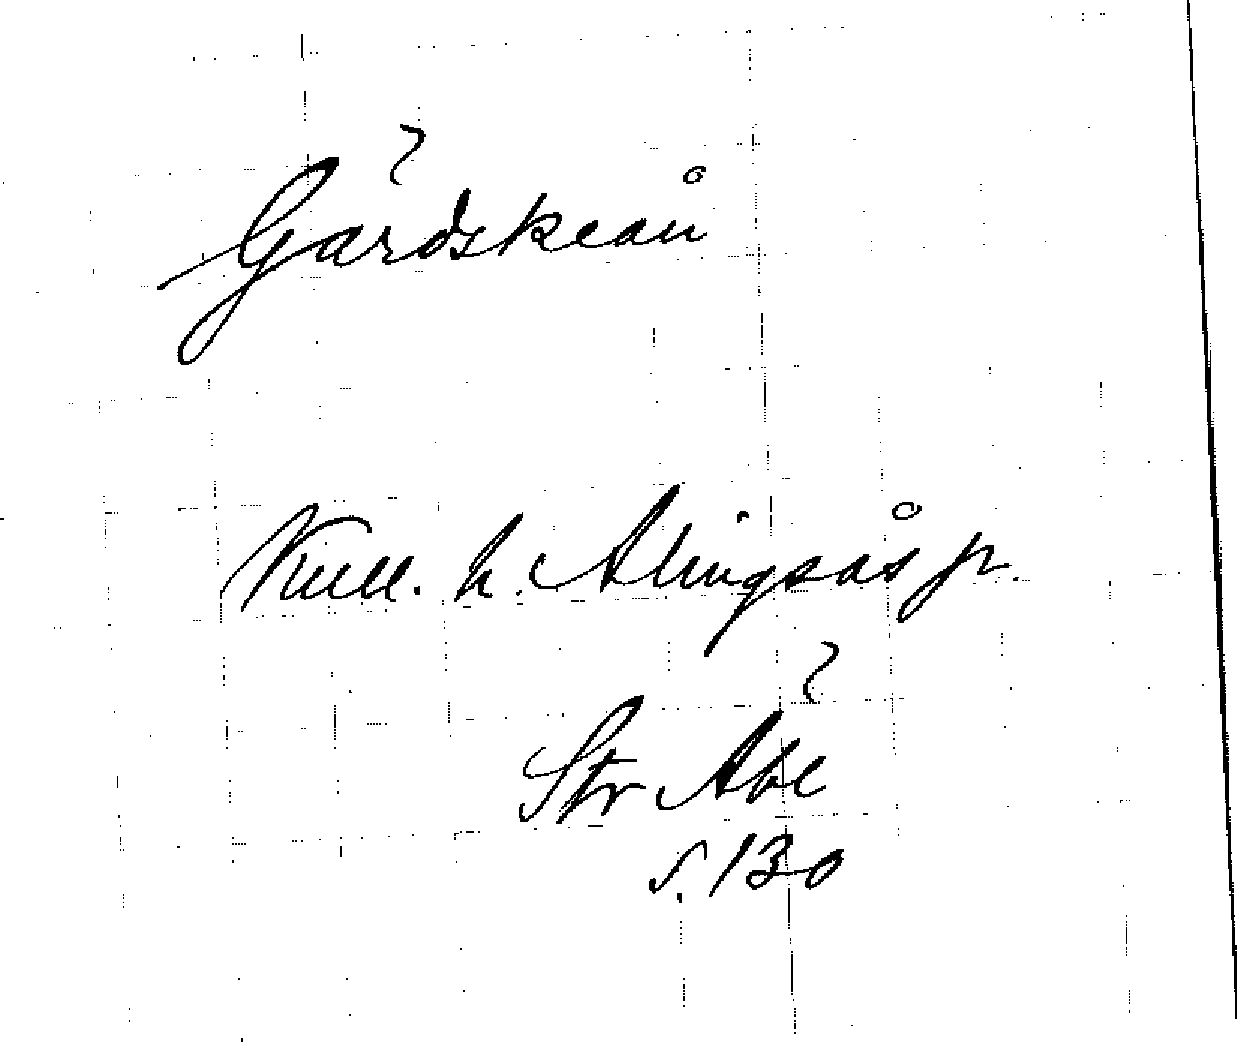 Gärdskeån
Kull. h. Alingsås sn.
Str Äbl
s. 130